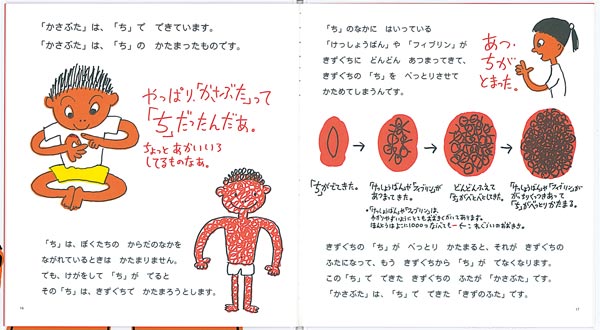 「かさぶた」は、「ち」で できています。
「かさぶた」は、「ち」の かたまったものです。
やっぱり、「かさぶた」って
「ち」だったんだあ。
ちょっと あかいいろ
してるものなあ。
「ち」は、ぼくたちの からだのなかを
ながれているときは かたまりません。
でも、けがをして 「ち」が でると
その「ち」は、きずぐちで かたまろうとします。
16
「ち」のなかに はいっている
「けっしょうばん」や 「フィブリン」が
きずぐちに どんどん あつまってきて、
きずぐちの 「ち」を べっとりさせて
かためてしまうんです。
あつ・
ちが
とまった。
「ち」がでてきた。
「けっしょうばん」や「フィブリン」が
あつまってきた。
どんどんふえて
「ち」がべっとりしてきた。
「けっしょうばん」や「フィブリン」が
「ち」がべっとりかたまる。
きずぐちの 「ち」が べっとり かたまると、それが きずぐちの
ふたになって、もう きずぐちから 「ち」が でなくなります。
この「ち」で できた きずぐちの ふたが 「かさぶた」です。
「かさぶた」は、「ち」で できた 「きずのふた」です。
17